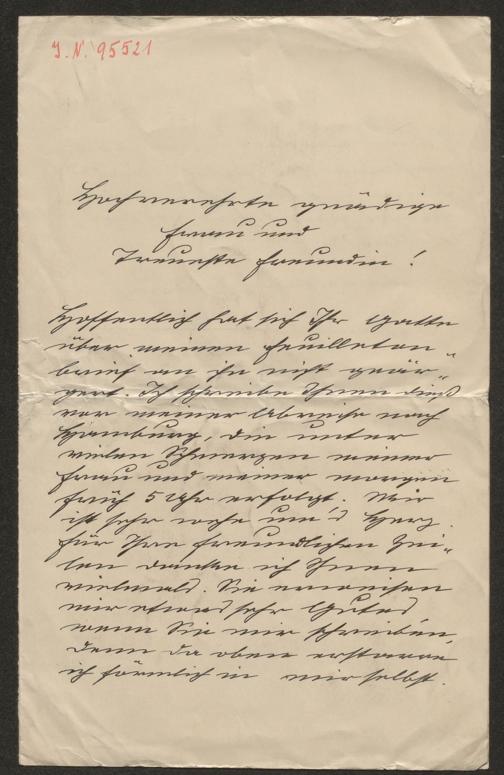 J.N. 95521
Hochverehrte gnädige
Frau und
Treueste Freundin!
Hoffentlich hat sich Ihr Gatte
über meinen Feuilleton-
brief an ihn nicht geär-
gert. Ich schreibe Ihnen dieß
vor meiner Abreise nach
Hamburg, die unter
vielen Schmerzen meiner
Frau und meiner morgen
früh 5 Uhr erfolgt. Mir
ist sehr wehe um's Herz.
Für Ihre freundlichen Zei-
len danke ich Ihnen
vielmals. Sie erweisen
mir etwas sehr Gutes
wenn Sie mir schreiben,
denn da oben erstarre
ich förmlich in mir selbst.